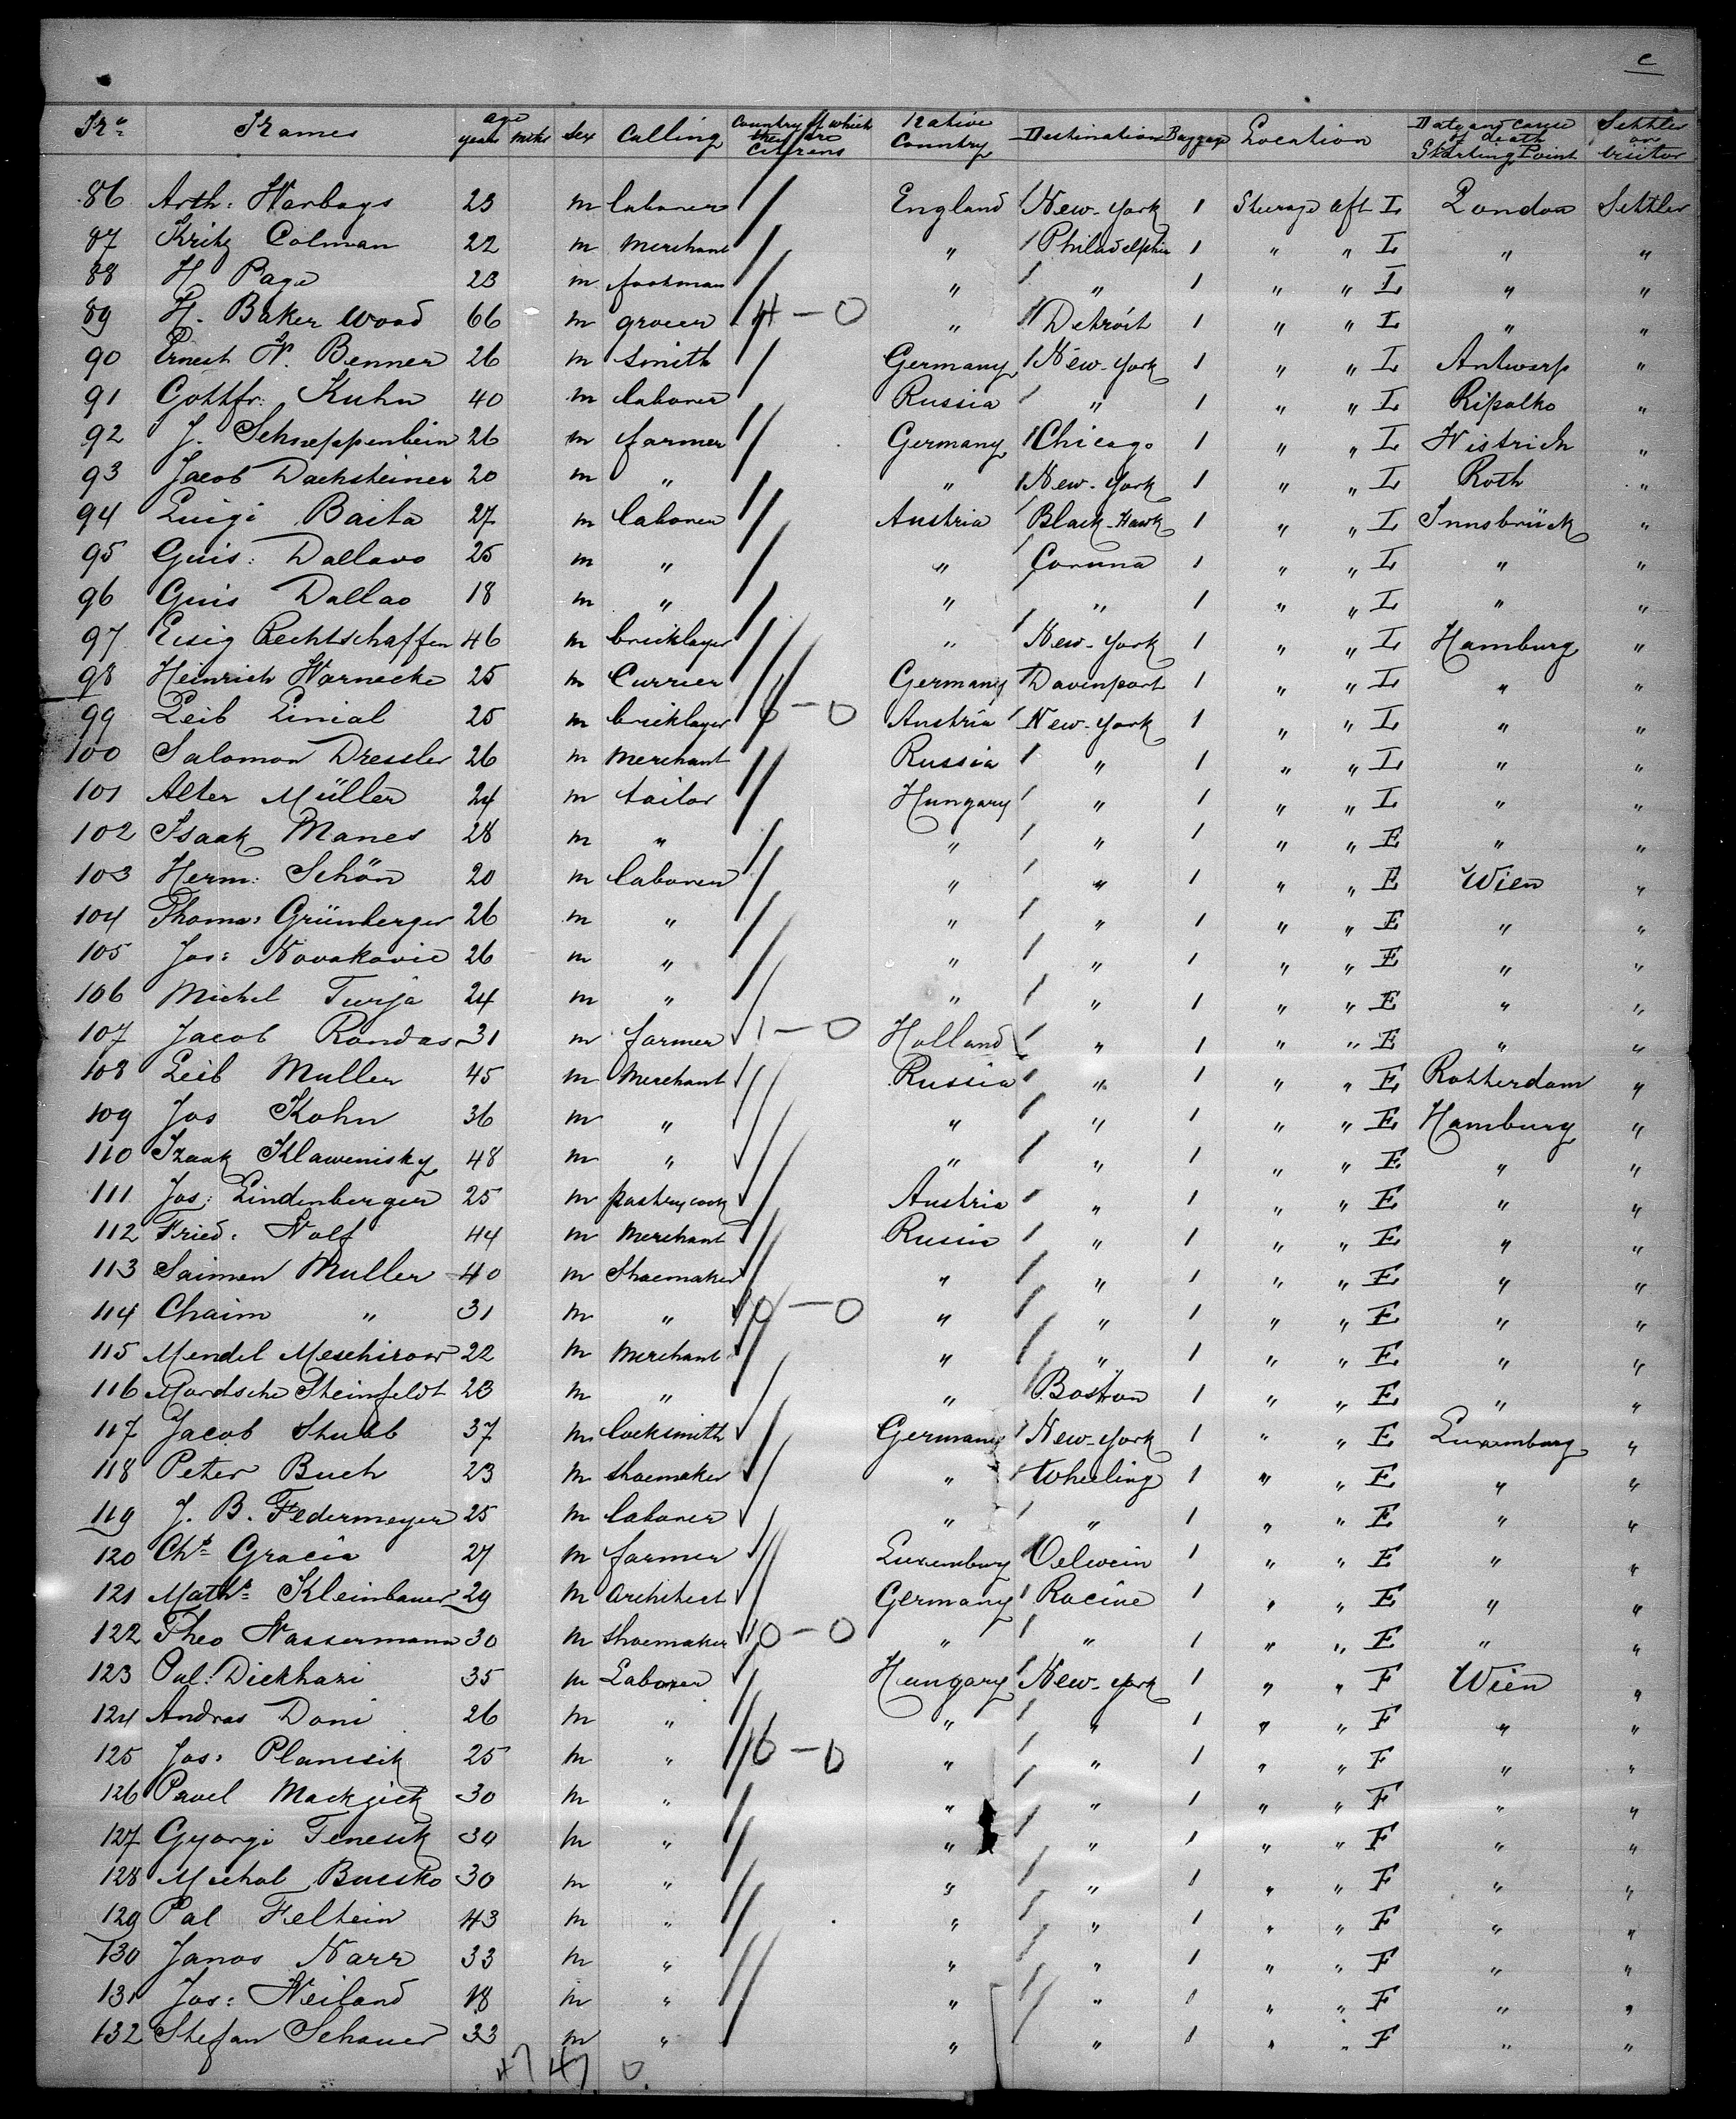 c
Nr. Names age years mths Sex Calling Country of which they are Citizens Native Country Destination Baggage Location Date and cause of death Starting Point Settler or Visitor
86 Arth: Warbays 23 m laborer England New-York 1 Steerage aft I London Settler
87 Fritz Colman 22 m Merchant " Philadelphia 1 " " I " "
88 H Page 23 m footman " " 1 " " I " "
89 H. Baker Wood 66 m grocer 4-0 " Detroit 1 " " I " "
90 Ernest W. Benner 26 m smith Germany New-York 1 " " I Antwerp "
91 Gottfr: Kuhn 40 m laborer Russia " 1 " " I Ripalko "
92 J. Schneppenbein 26 m farmer Germany Chicago 1 " " I Wistrich "
93 Jacob Dachsteiner 20 m " " New-York 1 " " I Roth "
94 Luigi Baita 27 m laborer Austria Black-Hawk 1 " " I Innsbrück "
95 Guis: Dallavo 25 m " " Coruna 1 " " I " "
96 Guis Dallao 18 m " " " 1 " " I " "
97 Eisig Rechtschaffen 46 m bricklayer " New-York 1 " " I Hamburg "
98 Heinrich Warnecke 25 m Currier Germany Davenport 1 " " I " "
99 Leib Linial 25 m bricklayer 6-0 Austria New-York 1 " " I " "
100 Salomon Dressler 26 m Merchant Russia " 1 " " I " "
101 Alter Müller 24 m tailor Hungary " 1 " " I " "
102 Isaak Manes 28 m " " " 1 " " E " "
103 Herm: Schön 20 m laborer " " 1 " " E Wien "
104 Thomas Grünberger 26 m " " " 1 " " E " "
105 Jos: Novakovic 26 m " " " 1 " " E " "
106 Michel Turja 24 m " " " 1 " " E " "
107 Jacob Rondas 31 m farmer 1-0 Holland " 1 " " E " "
108 Leib Muller 45 m Merchant Russia " 1 " " E Rotterdam "
109 Jos Kohn 36 m " " " 1 " " E Hamburg "
110 Izaak Klawenisky 48 m " " " 1 " " E " "
111 Jos: Lindenberger 25 m pastrycook Austria " 1 " " E " "
112 Fried. Wolf 44 m Merchant Russia " 1 " " E " "
113 Saimen Muller 40 m Shoemaker " " 1 " " E " "
114 Chaim " 31 m " 10-0 " " 1 " " E " "
115 Mendel Meschirow 22 m Merchant " " 1 " " E " "
116 Mordsche Steinfeldt 23 m " " Boston 1 " " E " "
117 Jacob Stubb 37 m locksmith Germany New-York 1 " " E Luxemburg "
118 Peter Buch 23 m shoemaker " Wheeling 1 " " E " "
119 J. B. Federmeyer 25 m laborer " " 1 " " E " "
120 Chs Gracia 27 m farmer Luxemburg Oelwein 1 " " E " "
121 Maths Kleinbauer 29 m architect Germany Racine 1 " " E " "
122 Theo Wassermann 30 m shoemaker 10-0 " " 1 " " E " "
123 Pal: Dickhazi 35 m Laborer Hungary New-York 1 " " F Wien "
124 Andras Doni 26 m " " " 1 " " F " "
125 Jos: Plancsik 25 m " 16-0 " " 1 " " F " "
126 Pavel Mackjick 30 m " " " 1 " " F " "
127 Gyorgi Tenesik 30 m " " " 1 " " F " "
128 Michal Bucsko 30 m " " " 1 " " F " "
129 Pal Feltein 43 m " " " 1 " " F " "
130 Janos Narr 33 m " " " 1 " " F " "
131 Jos: Weiland 18 m " " " 1 " " F " "
132 Stefan Schauer 33 m " " " 1 " " F " "
47 47 0